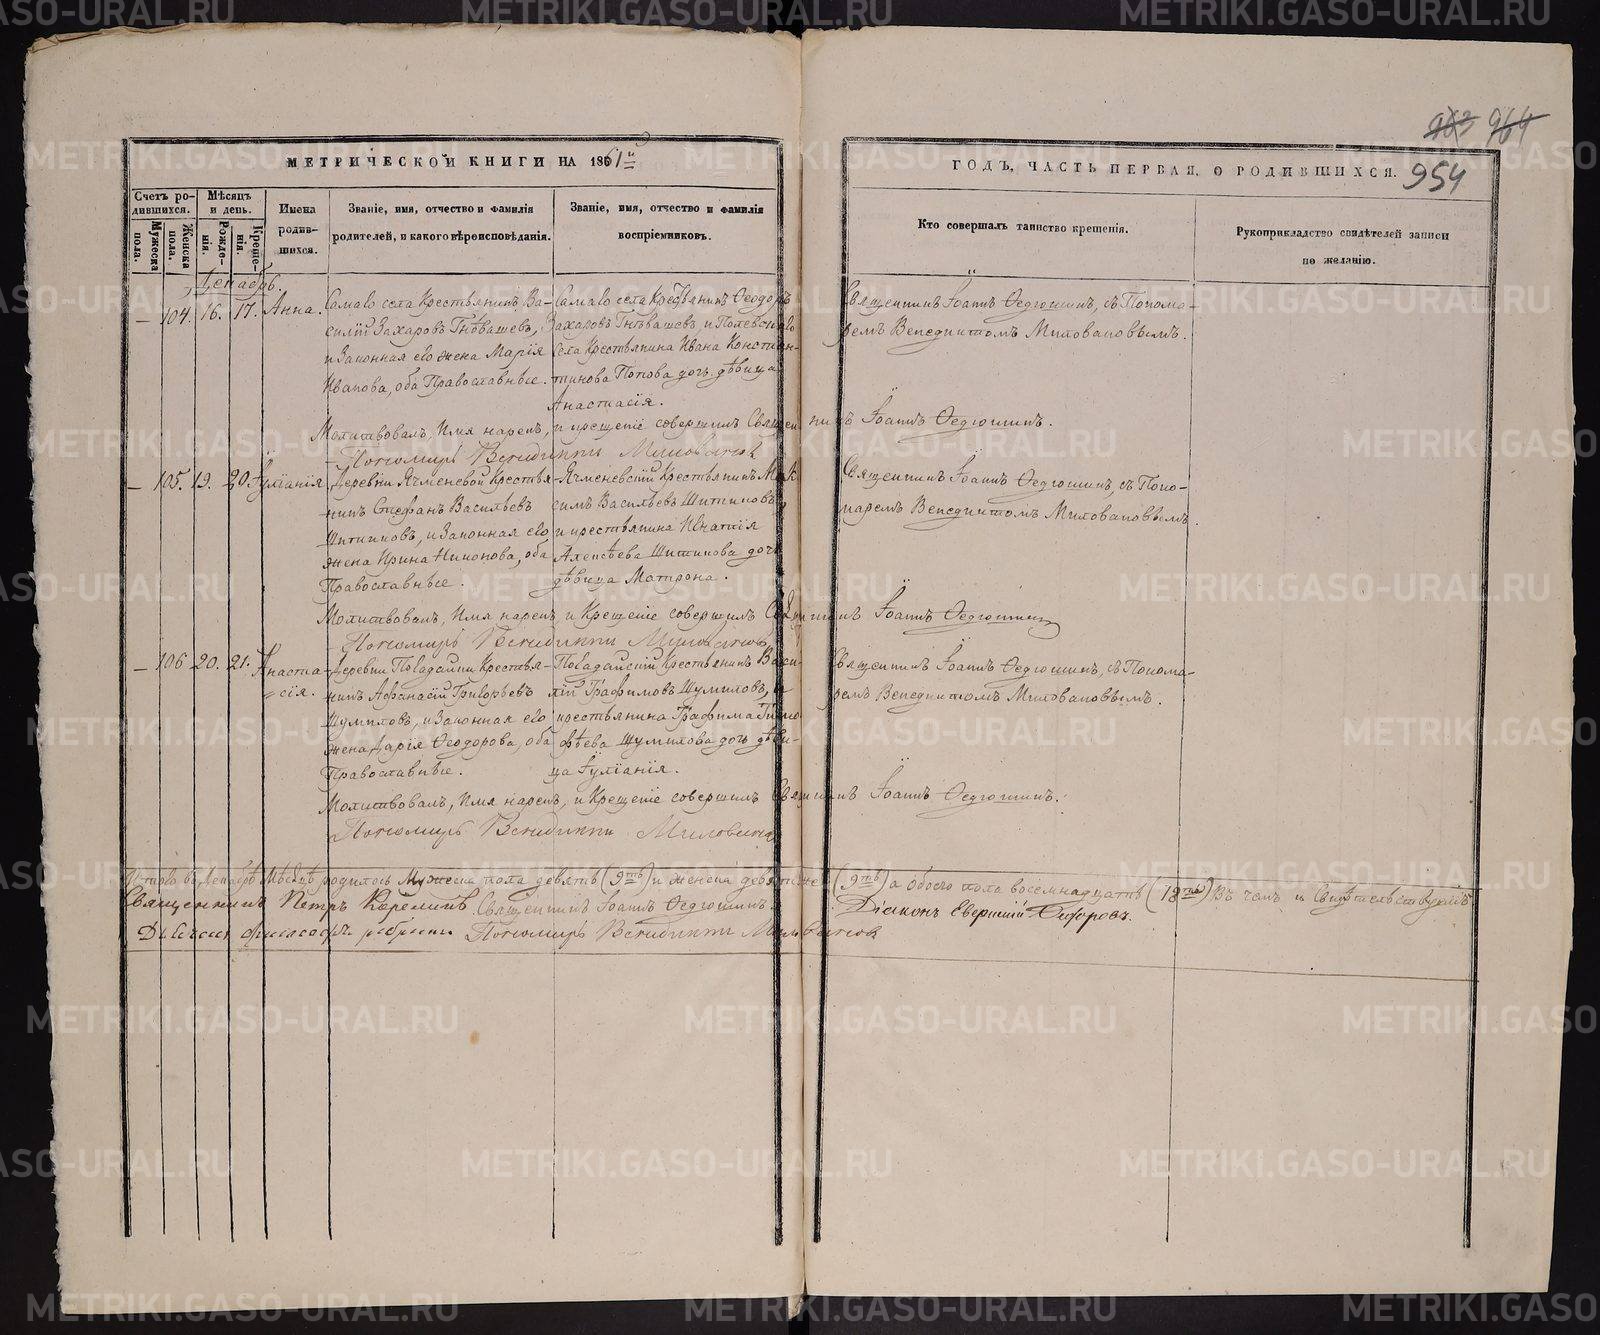 963 964
954
МЕТРИЧЕСКОЙ КНИГИ НА 1861й
ГОДЪ, ЧАСТЬ ПЕРВАЯ, О РОДИВШИХСЯ.
Счетъ родившихся.
Мужеска пола.
Женска пола.
Мѣсяцъ и день.
Рожденія.
Крещенія.
Имена родившихся.
Званіе, имя, отчество и фамилія
родителей, и какого вѣроисповѣданія.
Званіе, имя, отчество и фамилія
воспріемниковъ.
Кто совершалъ таинство крещенія.
Рукоприкладство свидѣтелей записи
по желанію.
Декабрь.
104. 16. 17. Анна.
Самаго села Крестьянинъ Ва-
силій Захаровъ Гнѣвашевъ,
и Законная его жена Марія
Иванова, оба Православные.
Самаго села Крестьянинъ Ѳеодоръ
Захаровъ Гнѣвашевъ, и Полевскаго
села Крестьянина Ивана Констан-
тинова Попова дочь дѣвица
Анастасія.
Священникъ Іоаннъ Ѳедюшинъ, съ Понома-
ремъ Венедиктомъ Миловановымъ.
Молитвовалъ, Имя нарекъ, и крещеніе совершилъ Священникъ Іоаннъ Ѳедюшинъ.
Пономарь Венедиктъ Миловановъ
105. 19. 20. Іуліанія
Деревни Ячменевой Крестья-
нинъ Стефанъ Васильевъ
Шитиковъ, и Законная его
жена Ирина Никонова, оба
Православные.
Ячменевскій Крестьянинъ Мак
симъ Васильевъ Шитиковъ,
и крестьянина Игнатія
Алексѣева Шитикова дочь
дѣвица Матрона.
Священникъ Іоаннъ Ѳедюшинъ, съ Поно-
маремъ Венедиктомъ Миловановымъ.
Молитвовалъ, Имя нарекъ и Крещеніе совершилъ Священникъ Іоаннъ Ѳедюшинъ
Пономарь Венедиктъ Миловановъ
106 20. 21. Анаста-
сія.
Деревни Крестья-
нинъ Афанасій Григорьевъ
Шумиловъ, и Законная его
жена Дарія Ѳеодорова, оба
Православные.
Крестьянинъ Васи-
лій Трафимовъ Шумиловъ, и
крестьянина Трафима Тимо
фѣева Шумилова дочь дѣви-
ца Іуліанія.
Священникъ Іоаннъ Ѳедюшинъ, съ Понома-
ремъ Венедиктомъ Миловановымъ.
Молитвовалъ, Имя нарекъ, и Крещеніе совершилъ Священникъ Іоаннъ Ѳедюшинъ.
Пономарь Венедиктъ Миловановъ
Итого въ Декабрѣ Мѣсяцѣ родилось Мужеска пола девять (9ть) и женска девять (9ть) а обоего пола восемнадцать (18ть) Въ чемъ и Свидѣтельствуемъ
Священникъ Петръ Карелинъ Священникъ Іоаннъ Ѳедюшинъ Діаконъ Сидоровъ.
Пономарь Венедиктъ Миловановъ
METRIKI.GASO-URAL.RU